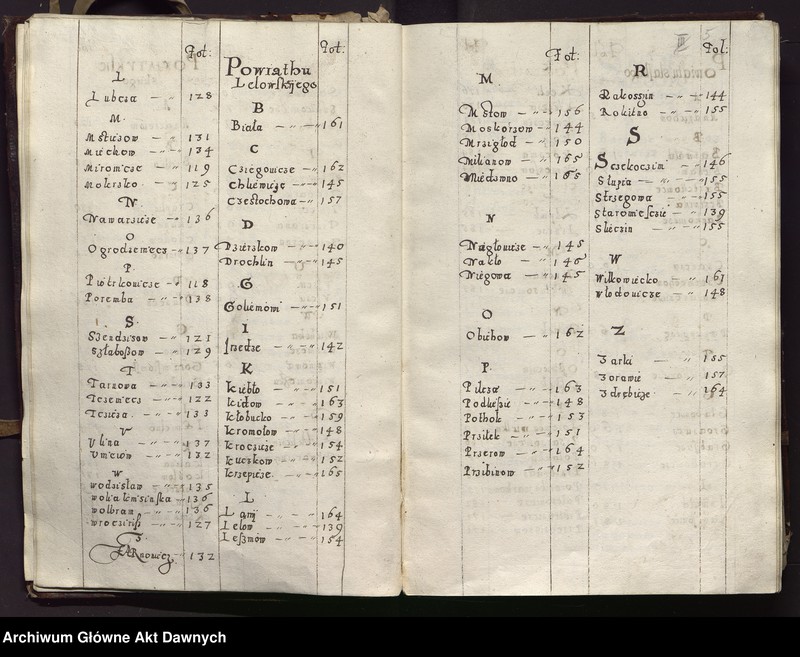 Fol:
L
Lubcza — „ 128
M.
Msticzow — „ 131
Miechow — „ 134
Miromicze — „ 119
Mokrsko — „ 125
N
Nawarzicze — „ 136
O
Ogrodzeniecz — „ 137
P.
Piotrkowicze — „ 118
Poremba — „ 138
S.
Sędziszow — „ 121
Szłaboszow — „ 129
T.
Tarnowa — „ 133
Tczicza — „ 133
V
Vlina — „ 137
Vniejow — „ 132
W
Wodzislaw — „ 135
136
Wolbram — „ 136
127
Z
Zarnowiecz — „ 132
Fol:
Powiathu
Lelowskijego
B
Biala — „ — „ 161
C
162
Chliewicze — „ 145
Częstochowa — „ 157
D
Dzierzkow — „ — „ 140
Drochlin — „ — „ 145
G
Goleniowi — „ — „ 151
I
Irzedze — „ — „ 142
K
151
Kidow — „ — „ 163
Kłobucko — „ — „ 159
Kromolow — „ — „ 148
Kroczicze — „ — „ 154
Kuczkow — „ — „ 152
Krzepicze — „ 165
L
164
Lelow — „ — „ 139
Leszniow — „ — „ 154
Fol:
M
Mstow — „ — „ 156
Moskorzow — „ 144
Mrzigłod — „ 150
165
Miedzwno — „ 165
N
Nagłowicze — „ 145
Nakło — „ 146
Niegowa — „ 145
O
Obichow — „ 162
P.
Pilcza — „ — „ 163
Podlesie — „ — „ 148
Pothok — „ — „ 153
Przilek — „ — „ 151
Przerow — „ — „ 164
Przibinow — „ — „ 152
Fol:
R
Rakoszin — „ — „ 144
Rokitno — „ — „ 155
S
Szczekoczini — „ 146
Slupia — „ — „ 155
Strzegowa — „ — „ 155
Staromiescie — „ 139
Sleczin — „ — „ 155
W
Wilkowiecko — „ 161
Włodowicze — „ 148
Z
Zarki — „ 155
Zorawie — „ 157
Zdrębicze — „ 164
Archiwum Główne Akt Dawnych